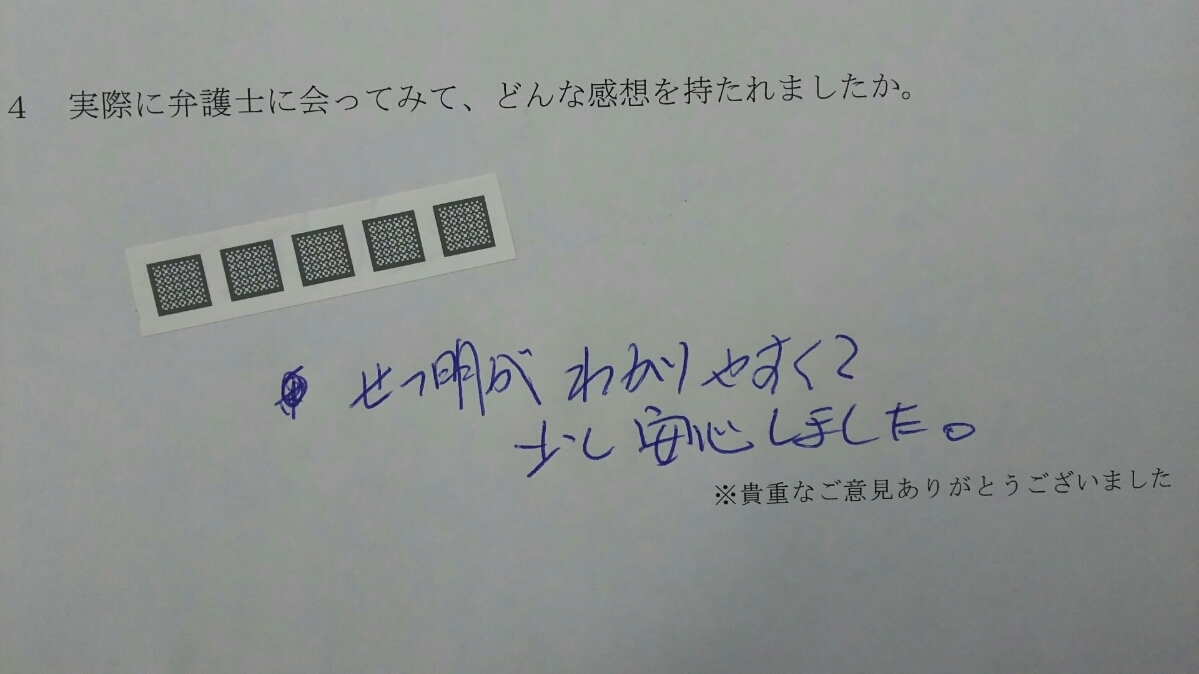 4 実際に弁護士に会ってみて、どんな感想を持たれましたか。
せつ明が わかりやすくて
少し安心しました。
※貴重なご意見ありがとうございました